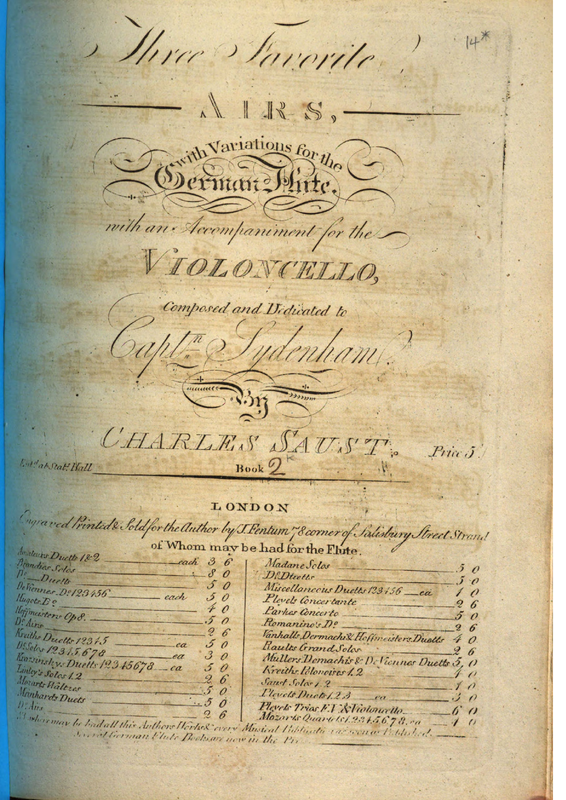 14*
Three Favorite
AIRS,
with Variations for the
German Flute,
with an Accompaniment for the
VIOLONCELLO,
Composed and Dedicated to
Captn. Sydenham.
By
CHARLES SAUST. Price 5
Entd. at Staff. Hall
Book 2
LONDON
Engraved Printed & Sold for the Author by J. Fentum 78 corner of Salisbury Street Strand
of Whom may be had for the Flute.
Duetts 1 & 2 each 3 6
Solos 8 0
Do. Duetts 5 0
Deviennes Do. 1 2 3 4 5 6 each 5 0
Do. 4 0
Hoffmeisters Op 8. 5 0
Do. Airs 2 6
Kreiths Duetts 1 2 3 4 5 ea 5 0
Do. Solos 1 2 3 4 5 6 7 8 ea 3 0
Duetts 1 2 3 4 5 6 7 8 ea 5 0
Solos 1. 2 2 6
Mozarts Waltzes 5 0
Duets 5 0
Do. Airs 2 6
Madane Solos 5 0
Do. Duetts 5 0
Miscellaneous Duetts 1 2 3 4 5 6 ea 4 0
Pleyels Concertante 2 6
Parkes Concerto 5 0
Romanines Do. 2 6
Vanhalls, Dermachs & Hoffmeisters. Duetts 4 0
Raults Grand Solos 2 6
Mullers Demachis & De Viennes Duetts 5 0
Kreiths 1. 2 4 0
Solos 1. 2 4 0
Pleyels Duets 1. 2. 3 ea 5 0
Pleyels Trios F. V. & Violoncello 6 0
Mozarts Quartets 1 2 3 4 5 6 7 8. ea 4 0
Where may be had all this Authors Works & every Musical Publication as soon as Published.
Several German Flute now in the